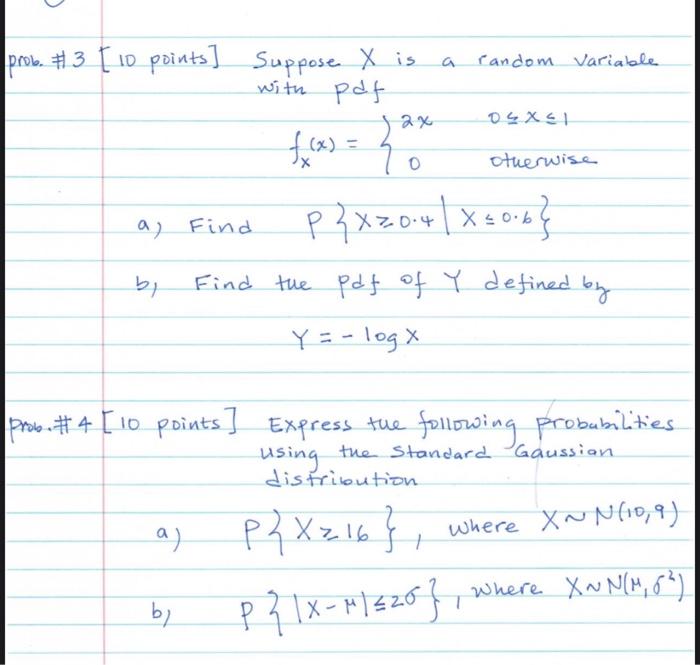 prob. #3 [10 points] Suppose X is a random variable
with pdf
f_X(x) = { 2x 0 ≤ x ≤ 1
0 otherwise
a) Find P{X ≥ 0.4 | X ≤ 0.6}
b) Find the pdf of Y defined by
Y = - log X
Prob. #4 [10 points] Express the following probabilities
using the standard Gaussian
distribution
a) P{X ≥ 16}, where X ~ N(10,9)
b) P{|X-μ| ≤ 2σ}, where X ~ N(μ, σ²)